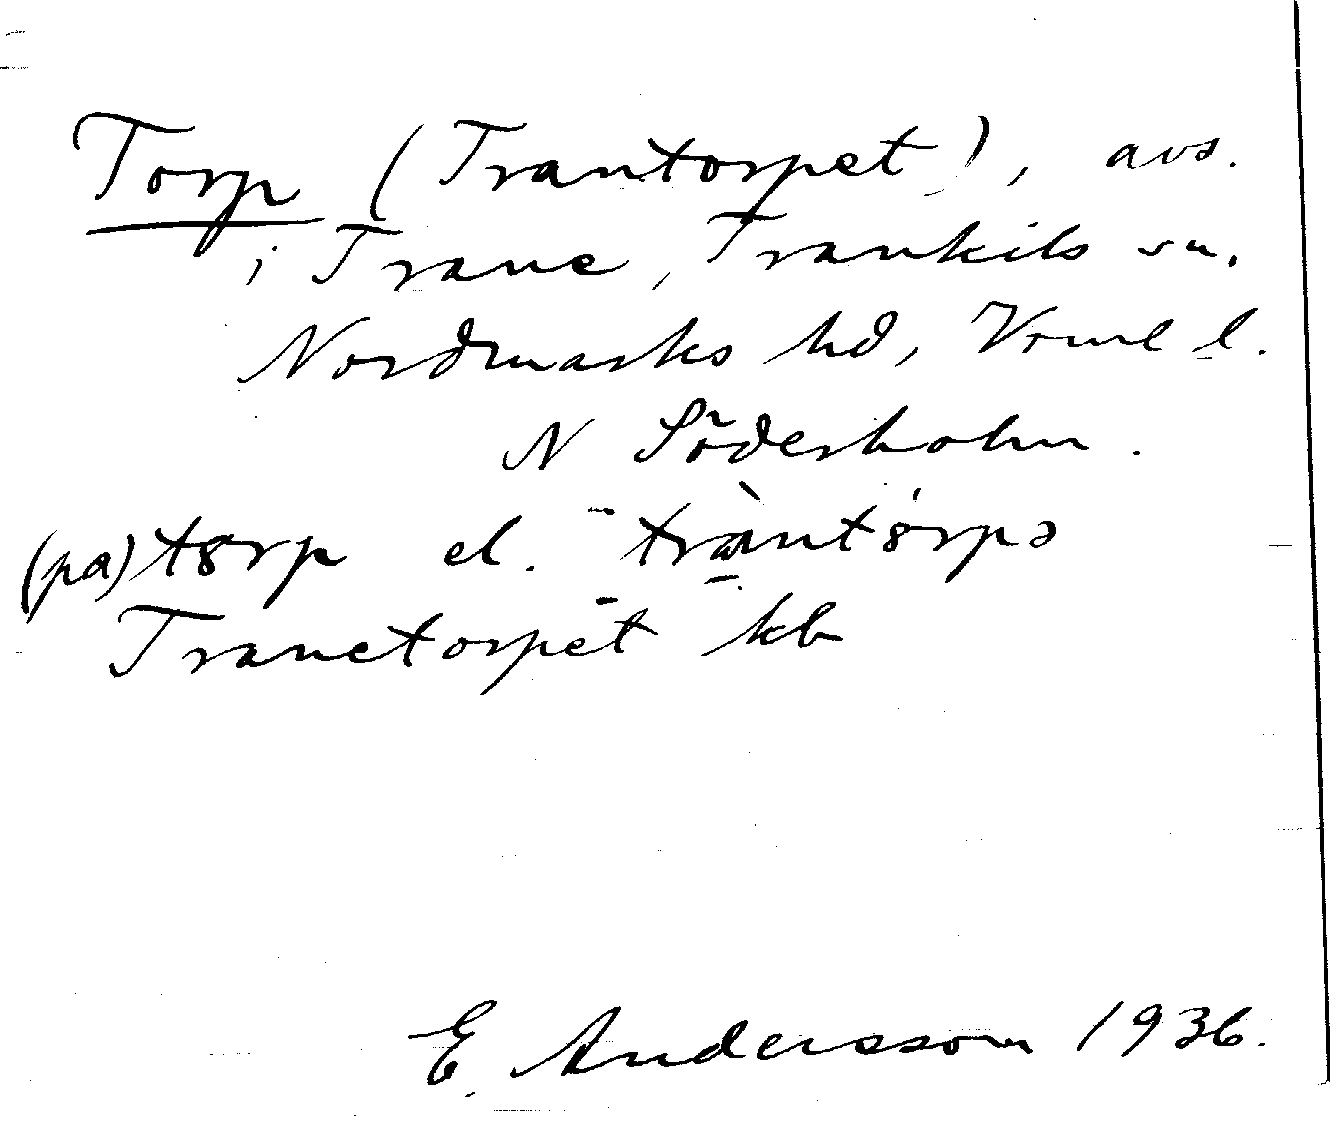 Torp (Trantorpet), avs.
i Trane, Trankils sn.
Nordmarks hd, Vrml l.
N Söderholm.
(pa) tørp el. tràntørpə
Tranetorpet kb
E. Andersson 1936.